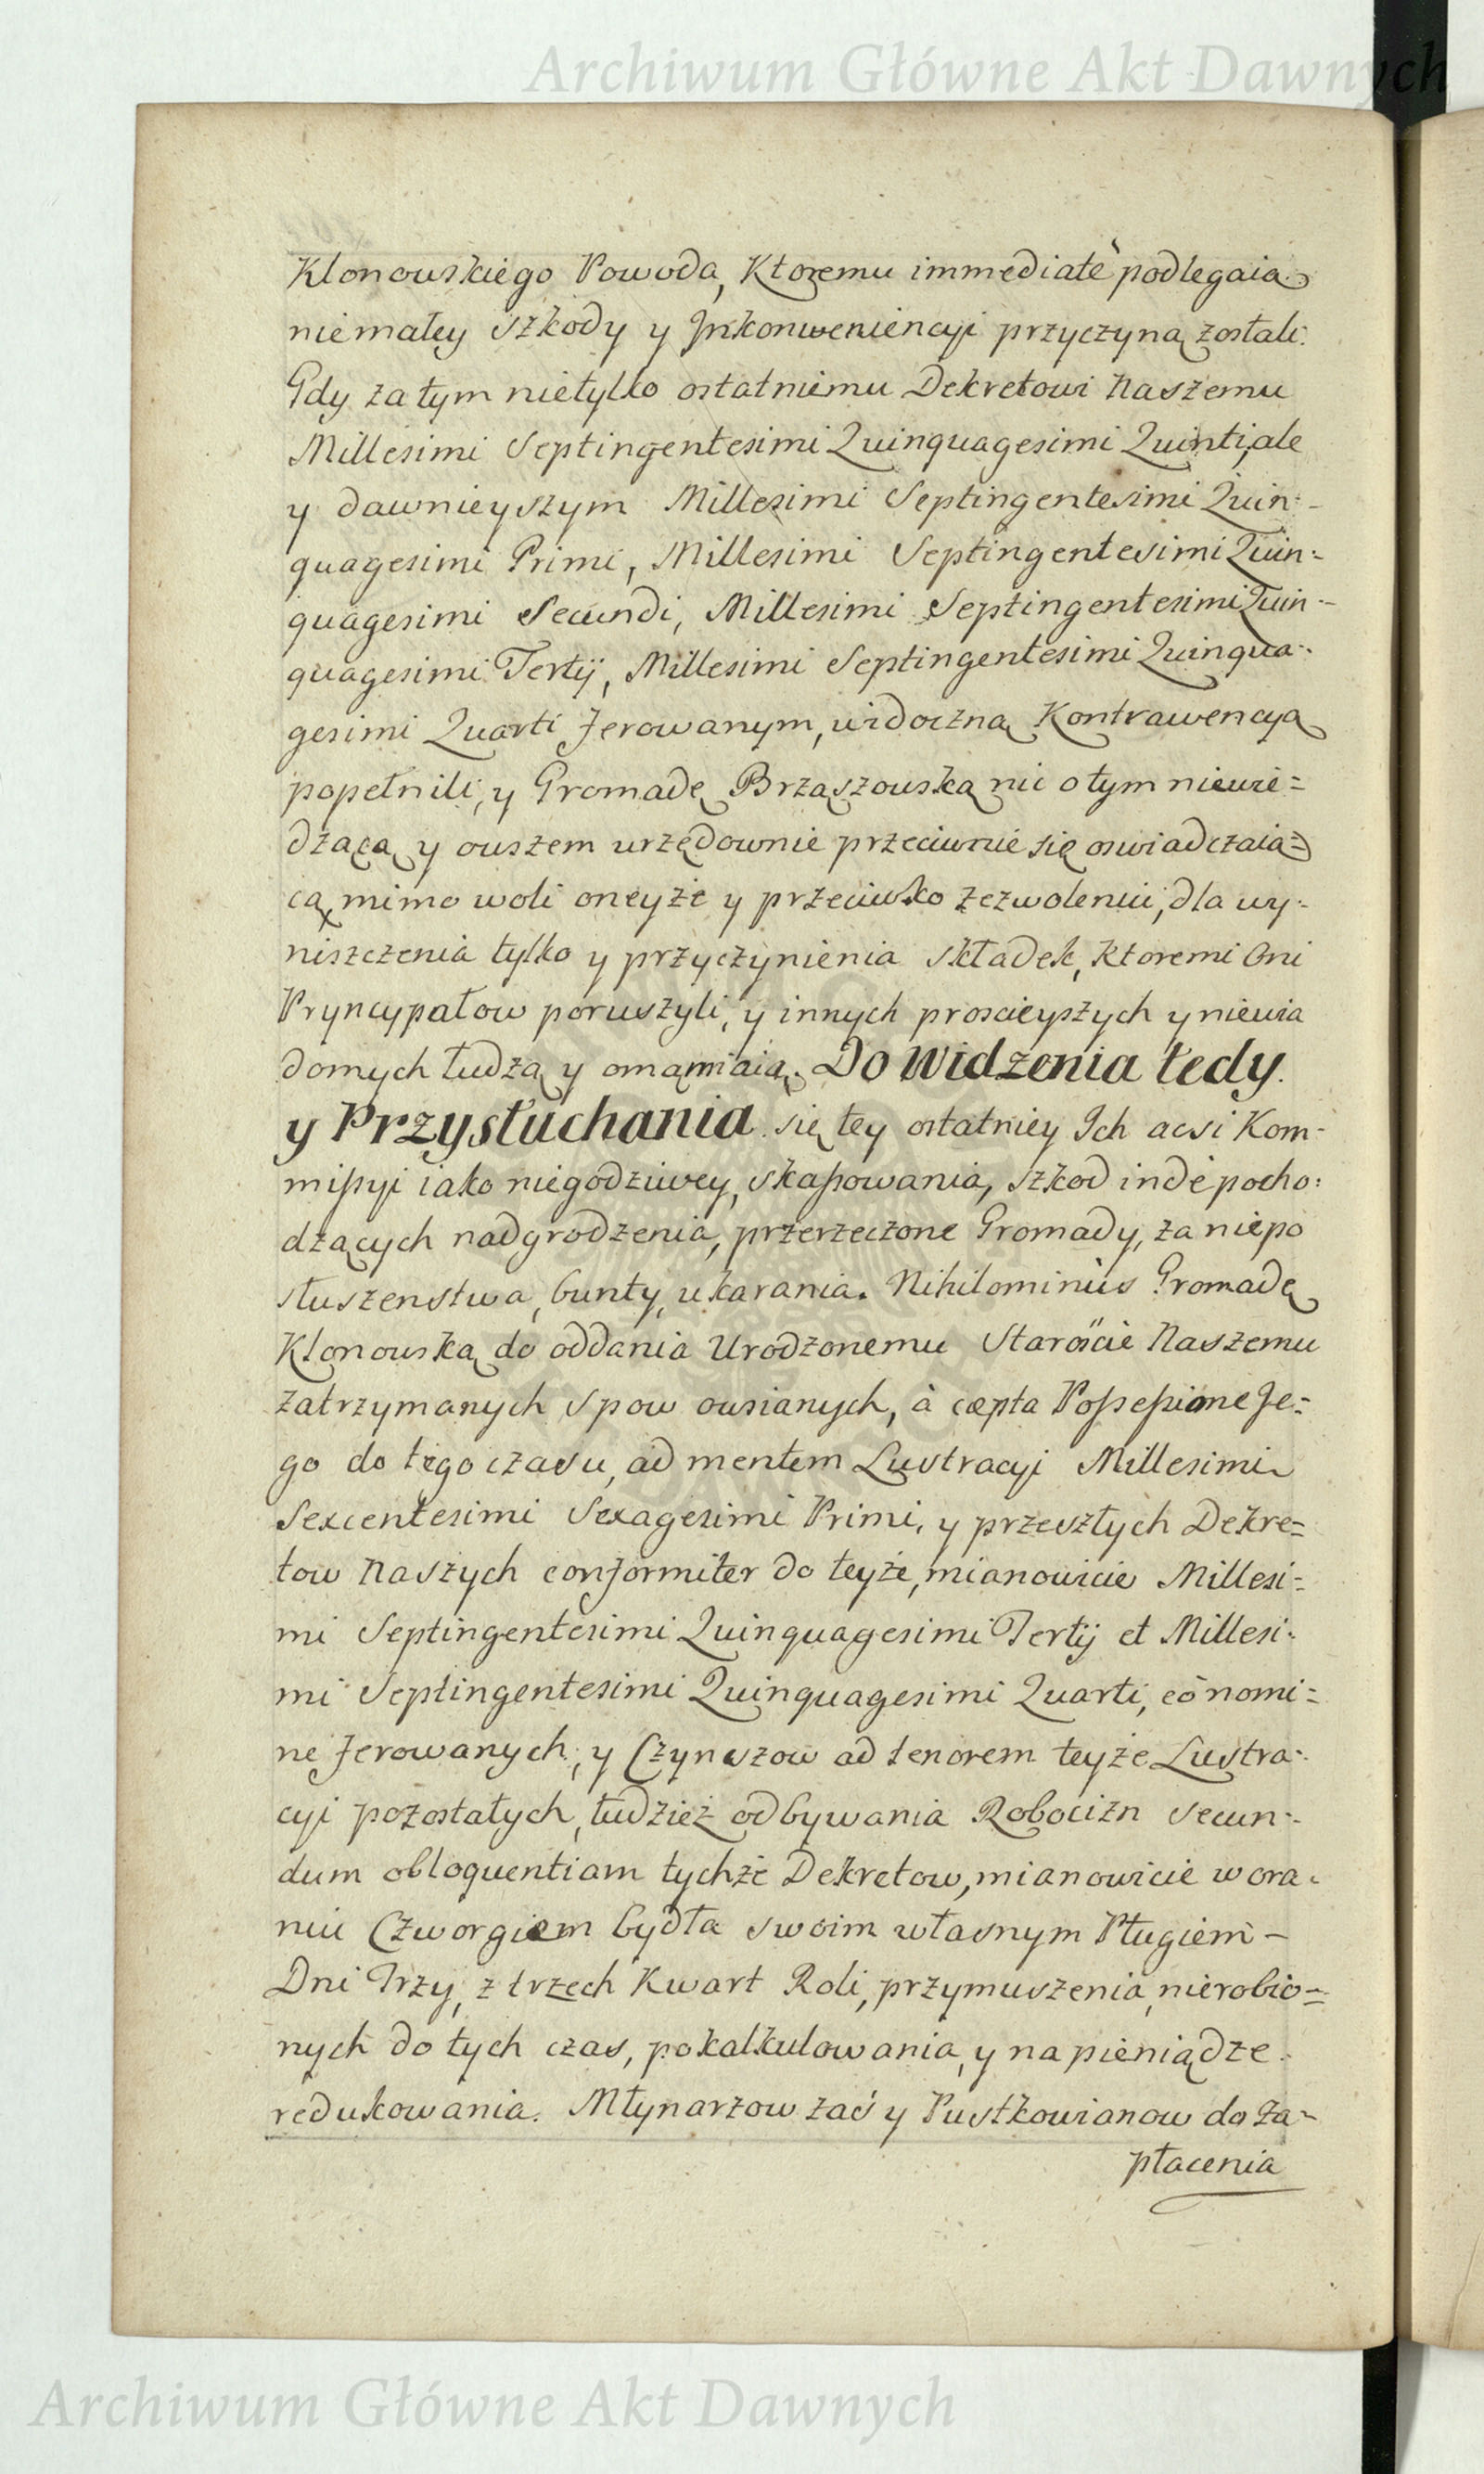 Archiwum Główne Akt Dawnych
Klonowskiego Powoda, Ktoremu immediatè podlegaią
niemałey szkody y Inkonweniencyi przyczyną zostali.
Gdy zatym nietylko ostatniemu Dekretowi Naszemu
Millesimi Septingentesimi Quinquagesimi Quinti, ale
y dawnieyszym Millesimi Septingentesimi Quin-
quagesimi Primi, Millesimi Septingentesimi Quin-
quagesimi Secundi, Millesimi Septingentesimi Quin-
quagesimi Tertij, Millesimi Septingentesimi Quinqua-
gesimi Quarti ferowanym, widoczną Kontrawencyą
popełnili, y Gromadę Brząszowską nic o tym niewie=
dzącą y owszem urzędownie przeciwnie się oswiadczaią=
cą, mimo woli oneyże y przeciwko zezwoleniu, dla wy-
niszczenia tylko y przyczynienia składek, ktoremi Oni
Pryncypałow poruszyli, y innych prosciey szych y niewia
domych łudzą y omamiaią. Do Widzenia tedy
y Przysłuchania się tey ostatniey Ich acsi Kom-
missyi iako niegodziwey, skassowania, szkod indè pocho:
dzących nadgrodzenia, przerzeczone Gromady, za niepo
słuszenstwa, bunty, ukarania. Nihilominùs Gromadę
Klonowską do oddania Urodzonemu Staroście Naszemu
zatrzymanych spow owsianych, à cæpta Possessione Je=
go do tego czasu, ad mentem Lustracyi Millesimi
Sexcentesimi Sexagesimi Primi, y przeszłych Dekre=
tow Naszych conformiter do teyże, mianowicie Millesi=
mi Septingentesimi Quinquagesimi Tertij et Millesi-
mi Septingentesimi Quinquagesimi Quarti, eò nomi=
ne ferowanych, y Czynszow ad tenorem teyże Lustra-
cyi pozostałych, tudzież odbywania Robocizn secun-
dum obloquentiam tychże Dekretow, mianowicie w ora-
niu Czworgiem bydła swoim własnym Pługiem -
Dni Trzy, z trzech Kwart Roli, przymuszenia, nierobio=
nych do tych czas, pokalkulowania, y na pieniądze
redukowania. Młynarzow zaś y Pustkowianow do Za-
płacenia
Archiwum Główne Akt Dawnych